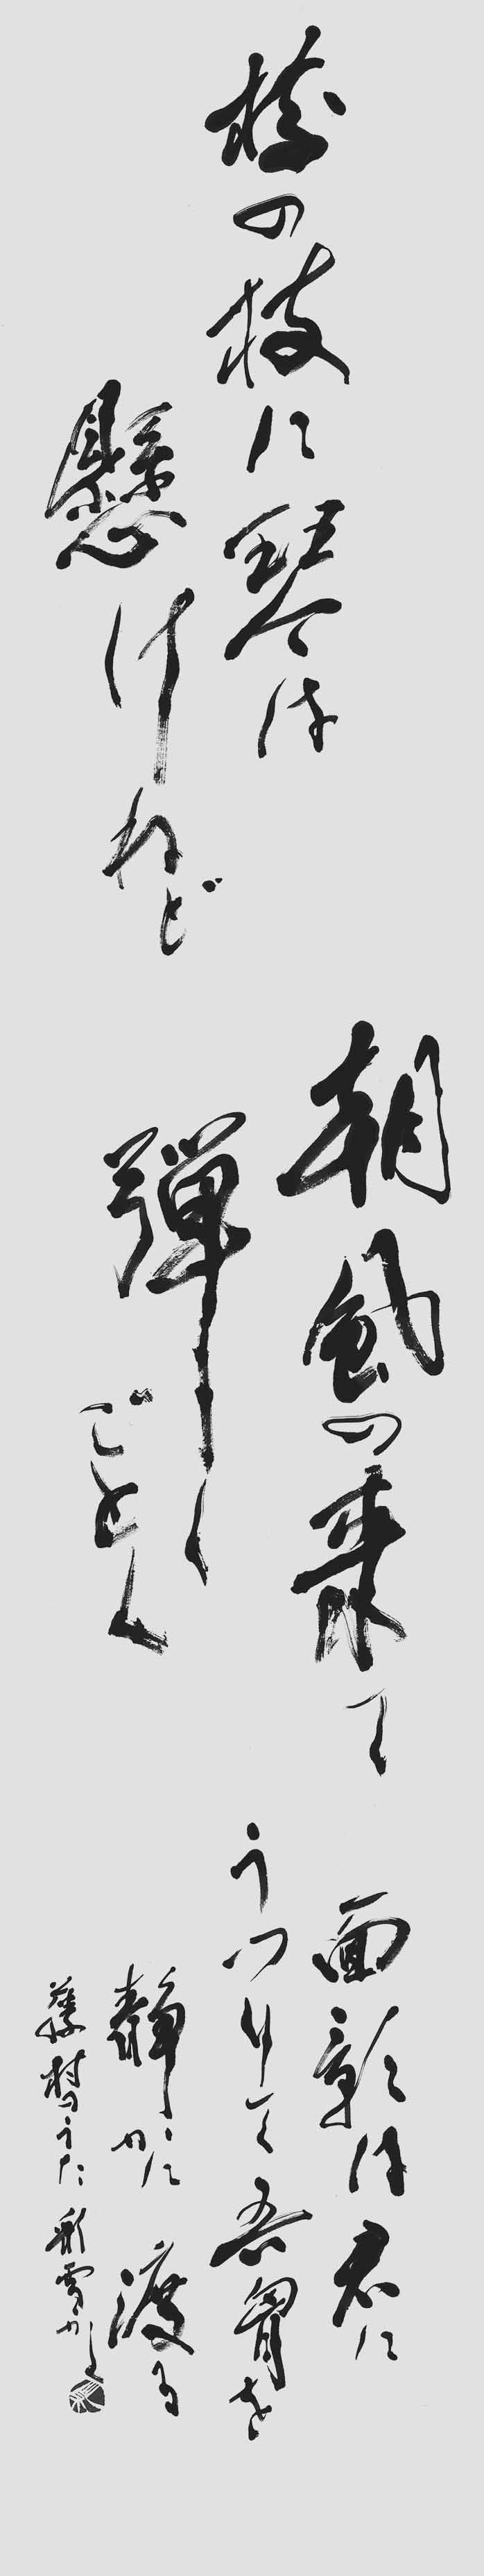 桜の枝に琴は
懸けれど
朝風の来て
弾くごとく
面影は君に
うつりて吾胸を
静かに渡る
藤村のうた 彩雪かく